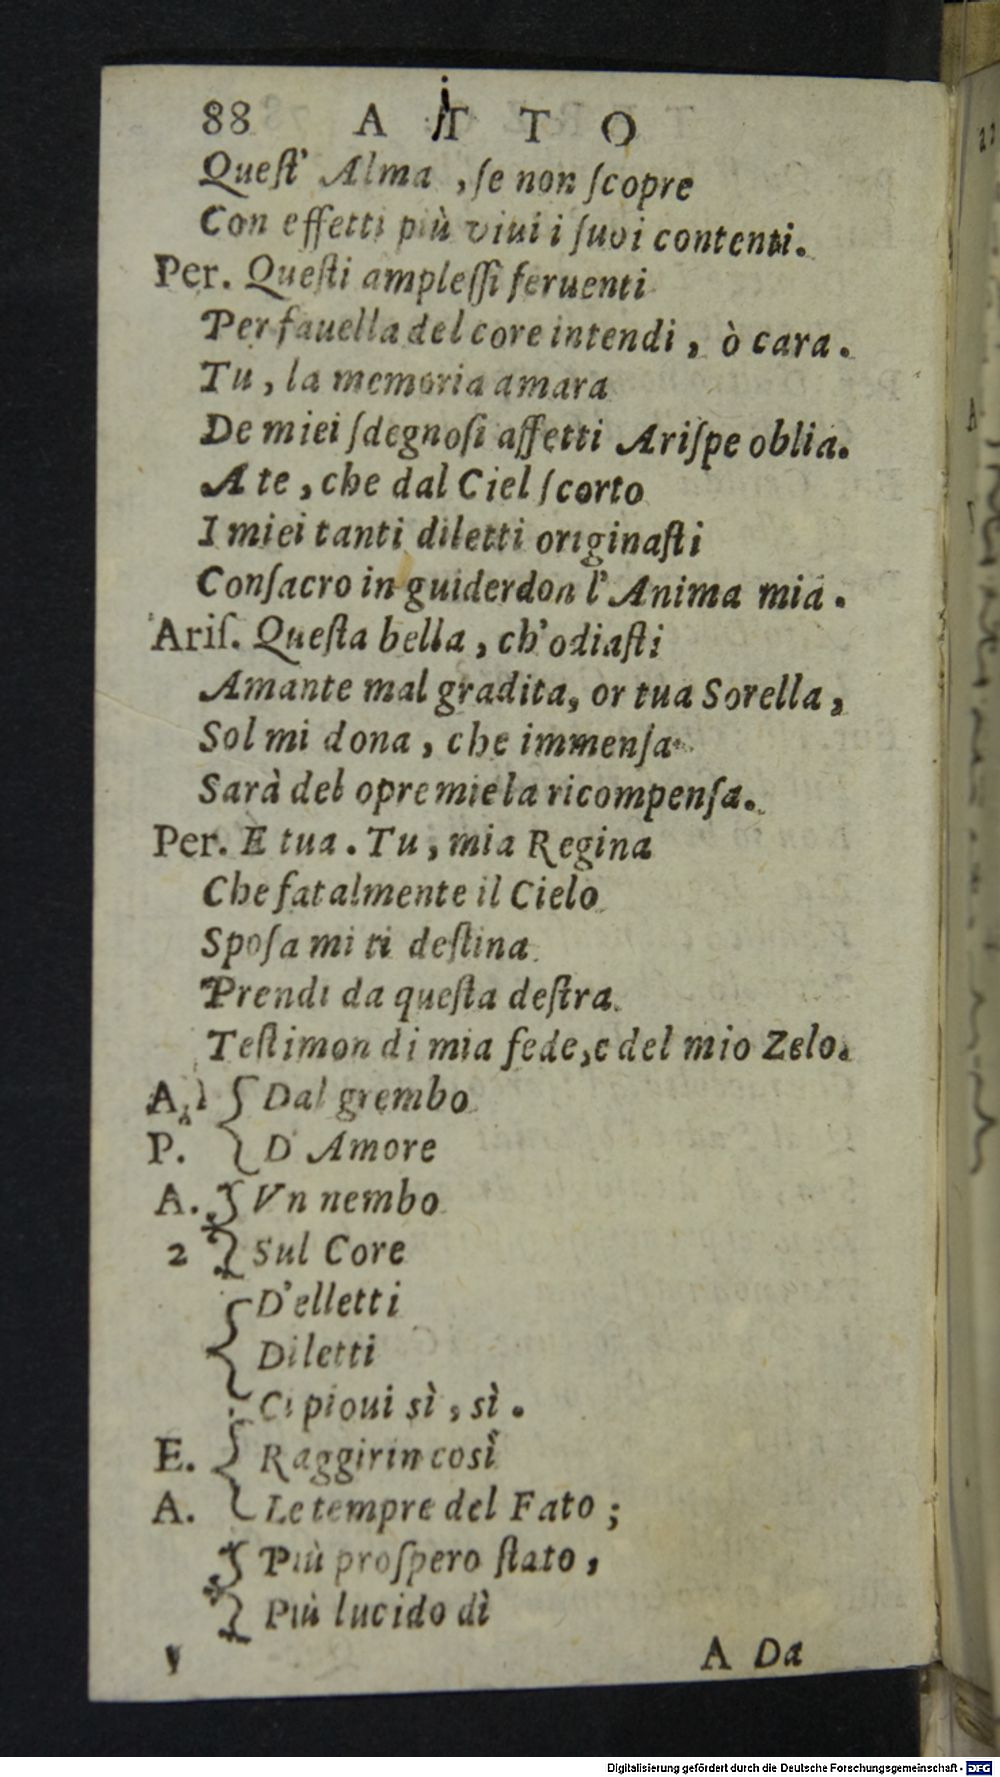 88 A T T O
Queſt' Alma , ſe non ſcopre
Con effetti più viui i ſuoi contenti.
Per. Queſti ampleſſi feruenti
Per fauella del core intendi , ò cara.
Tu , la memoria amara
De miei ſdegnoſi affetti Ariſpe oblia.
A te , che dal Ciel ſcorto
I miei tanti diletti originaſti
Conſacro in guiderdon l' Anima mia.
Ariſ. Queſta bella , ch' odiaſti
Amante mal gradita, or tua Sorella ,
Sol mi dona , che immenſa
Sarà del opre mie la ricompenſa.
Per. E tua. Tu , mia Regina
Che fatalmente il Cielo
Spoſa mi ti deſtina
Prendi da queſta deſtra
Teſtimon di mia fede, e del mio Zelo.
A. Dal grembo
P. D Amore
A. Vn nembo
2 Sul Core
D'elletti
Diletti
Ci pioui sì , sì.
E. Raggirin così
A. Le tempre del Fato ;
Più proſpero ſtato ,
Più lucido dì
A Da
Digitalisierung gefördert durch die Deutsche Forschungsgemeinschaft - DFG